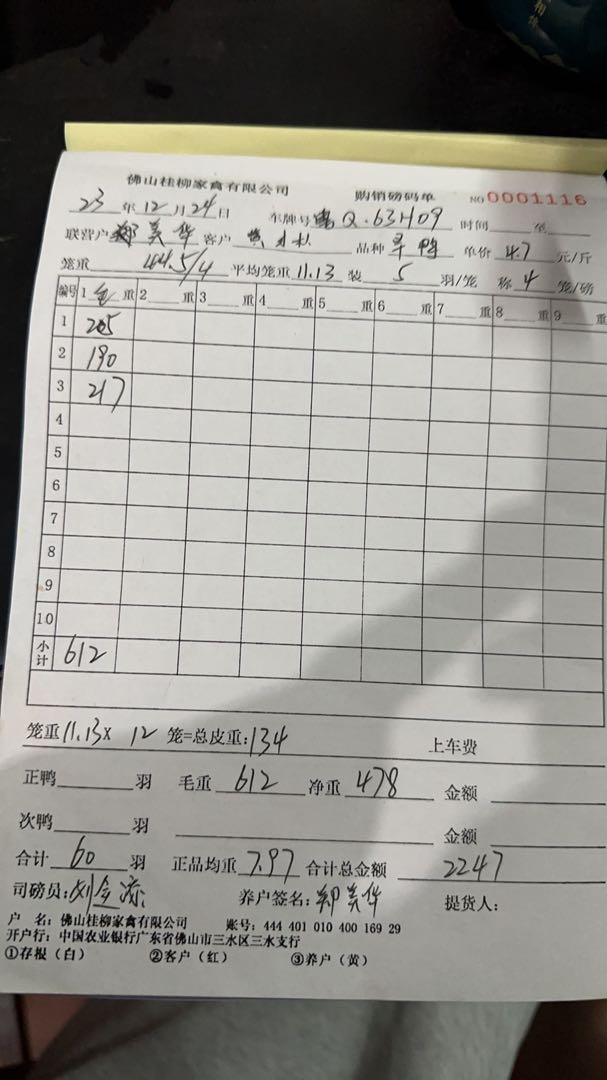 佛山桂柳家禽有限公司 购销磅码单 NO 0001116
23年12月24日 车牌号粤Q.63H09 时间 至
联营户郑美华 客户 品种 旱鸭 单价 4.7 元/斤
笼重 44.5/4 平均笼重 11.13 装 5 羽/笼 称 4 笼/磅
编号 1 重 2 重 3 重 4 重 5 重 6 重 7 重 8 重 9 重
1 205
2 190
3 217
4
5
6
7
8
9
10
小计 612
笼重11.13× 12 笼=总皮重:134 上车费
正鸭 羽 毛重 612 净重 478 金额
次鸭 羽 金额
合计 60 羽 正品均重 7.97 合计总金额 2247
司磅员: 养户签名:郑美华 提货人:
户 名:佛山桂柳家禽有限公司 账号:444 401 010 400 169 29
开户行:中国农业银行广东省佛山市三水区三水支行
①存根(白) ②客户(红) ③养户(黄)